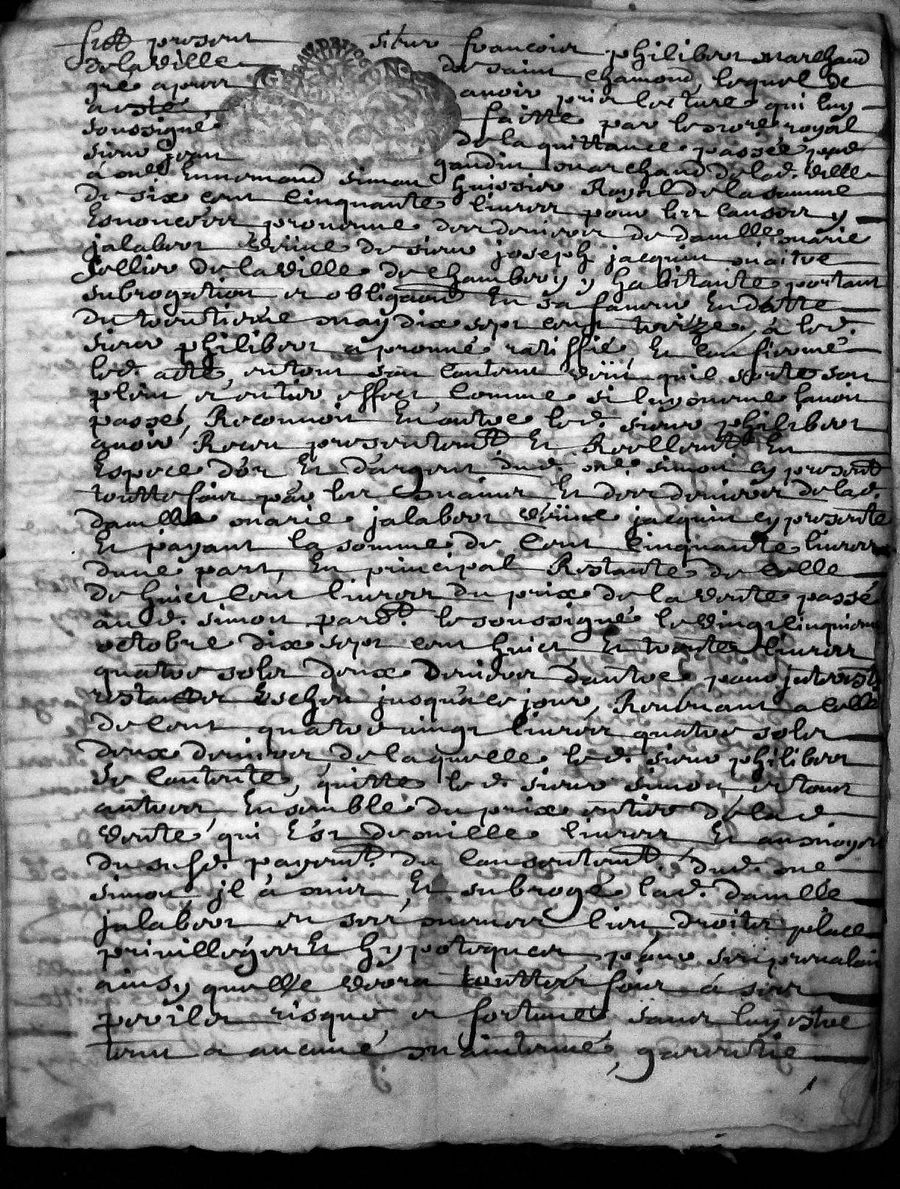 fust present sieur francois philibert marchand
de la ville de saint chamond, lequel de
gré apres avoir pris lecture qui luy
a esté faitte par le no.re royal
soussigné de la quittance passée par
sieur jean gaudin marchand de lad. ville
a m.e Ennemond simon huissier Royal de la somme
de six cent cinquante livres pour les causes y
Esnoncées provenue des deniers de dam.lle marie
jalabert veuve de sieur joseph jacquin maitre
sellier de la ville de chambery y habitante portant
subrogation et obligaon En sa faveur En datte
du trentieme may dix sept cent treize, a led.
sieur philibert aprouvé ratiffié, Et Confirmé
led. acte, en tout son contenu veut qu'il sorte son
plein et entier effect, comme si luy mesme l'avoit
passé, Reconnoit En outre led. sieur philibert
avoir Receu presentem.t Et Reellem.t En
Espece d'or Et d'argent dud. m.e simon cy present
touttefois par les mains Et des deniers de lad.
dam.lle marie jalabert veuve jacquin cy presente
Et payant la somme de Cent Cinquante livres
d'une part, En principal Restante de Celle
de huict Cent livres du prix de la vente passé
aud. simon pard.t le soussigné le vingt cinquieme
octobre dix sept cent huict Et trente livres
quatre sols deux deniers d'autre pour jnterests
restants Escheu jusqu'a ce jour, Revenant a celle
de Cent quatre vingt livres quatre sols
deux deniers, de laquelle led. sieur philibert
se contente, quitte led. sieur simon et tous
autres, Ensemble du prix entier de lad.
vente qui Est de mille livres Et au moyen
du susd. payem.t du consentem.t dud. m.e
simon jl a mis, Et subrogé lad. dam.lle
jalabert en ses mesmes lieu, droits place
privilleges Et hypoteques pour s'en prevaloir
ainsy quelle verra touttes fois a ses
perils risque et fortunes sans luy estre
tenu a aucune maintenue, garentie